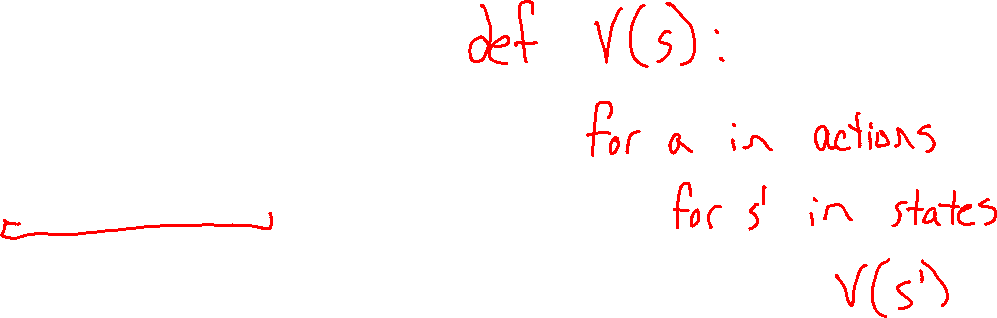 def V(s):
for a in actions
for s' in states
V(s')